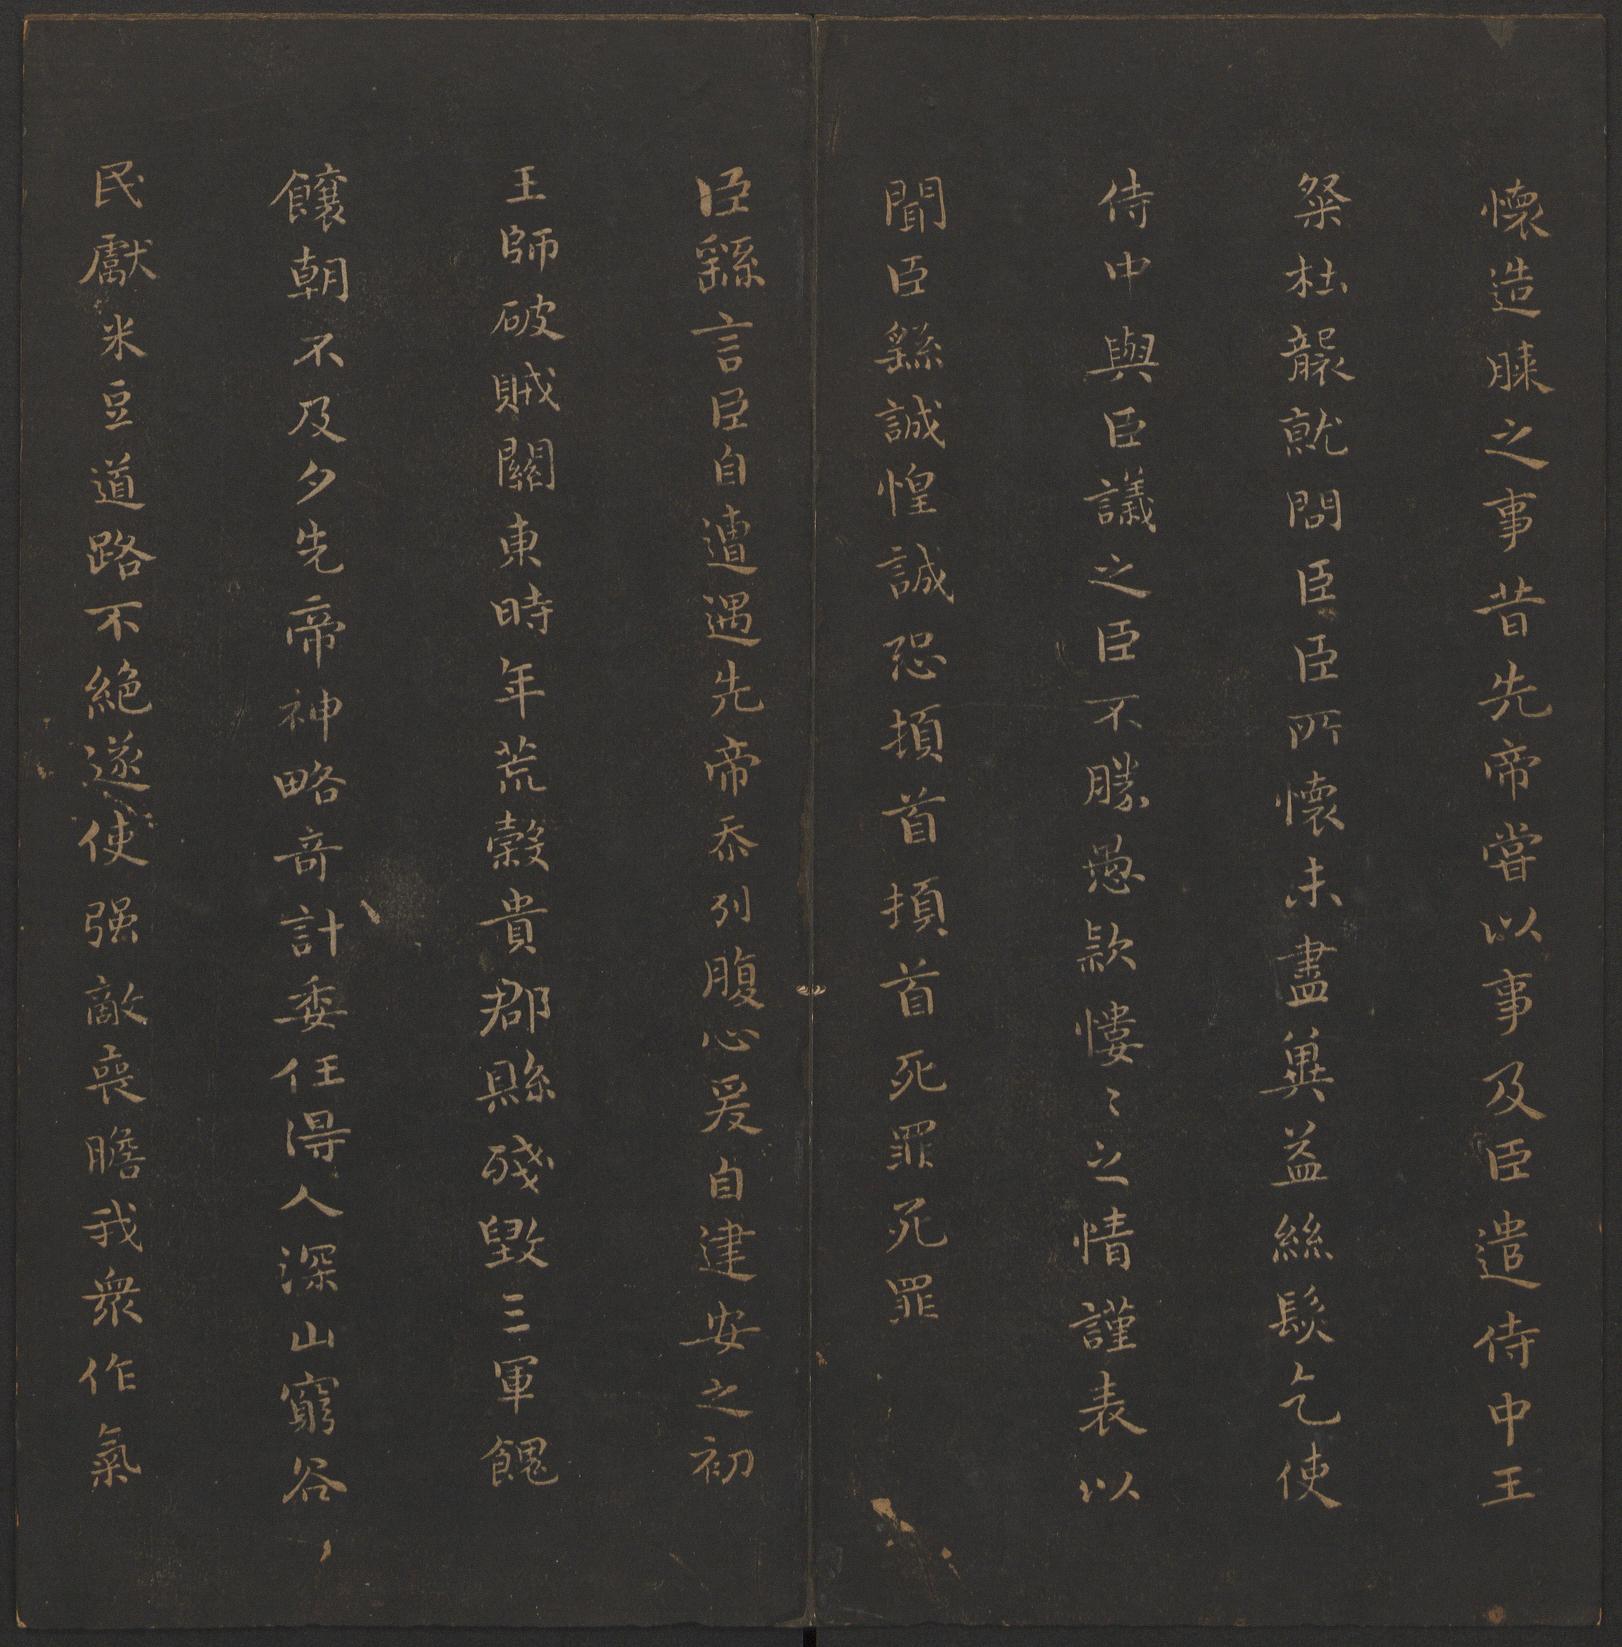 懷造膝之事昔先帝嘗以事及臣遣侍中王
粲杜襲就問臣臣所懷未盡冀益絲髮乞使
侍中與臣議之臣不勝愚款慺〻之情謹表以
聞臣繇誠惶誠恐頓首頓首死罪死罪
臣繇言臣自遭遇先帝忝列腹心爰自建安之初
王師破賊關東時年荒穀貴郡縣殘毀三軍餽
饟朝不及夕先帝神略奇計委任得人深山窮谷
民獻米豆道路不絕遂使强敵喪膽我衆作氣